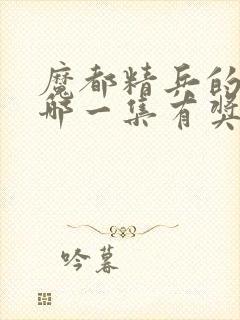 魔都精兵的
哪一集有奖
吟暮